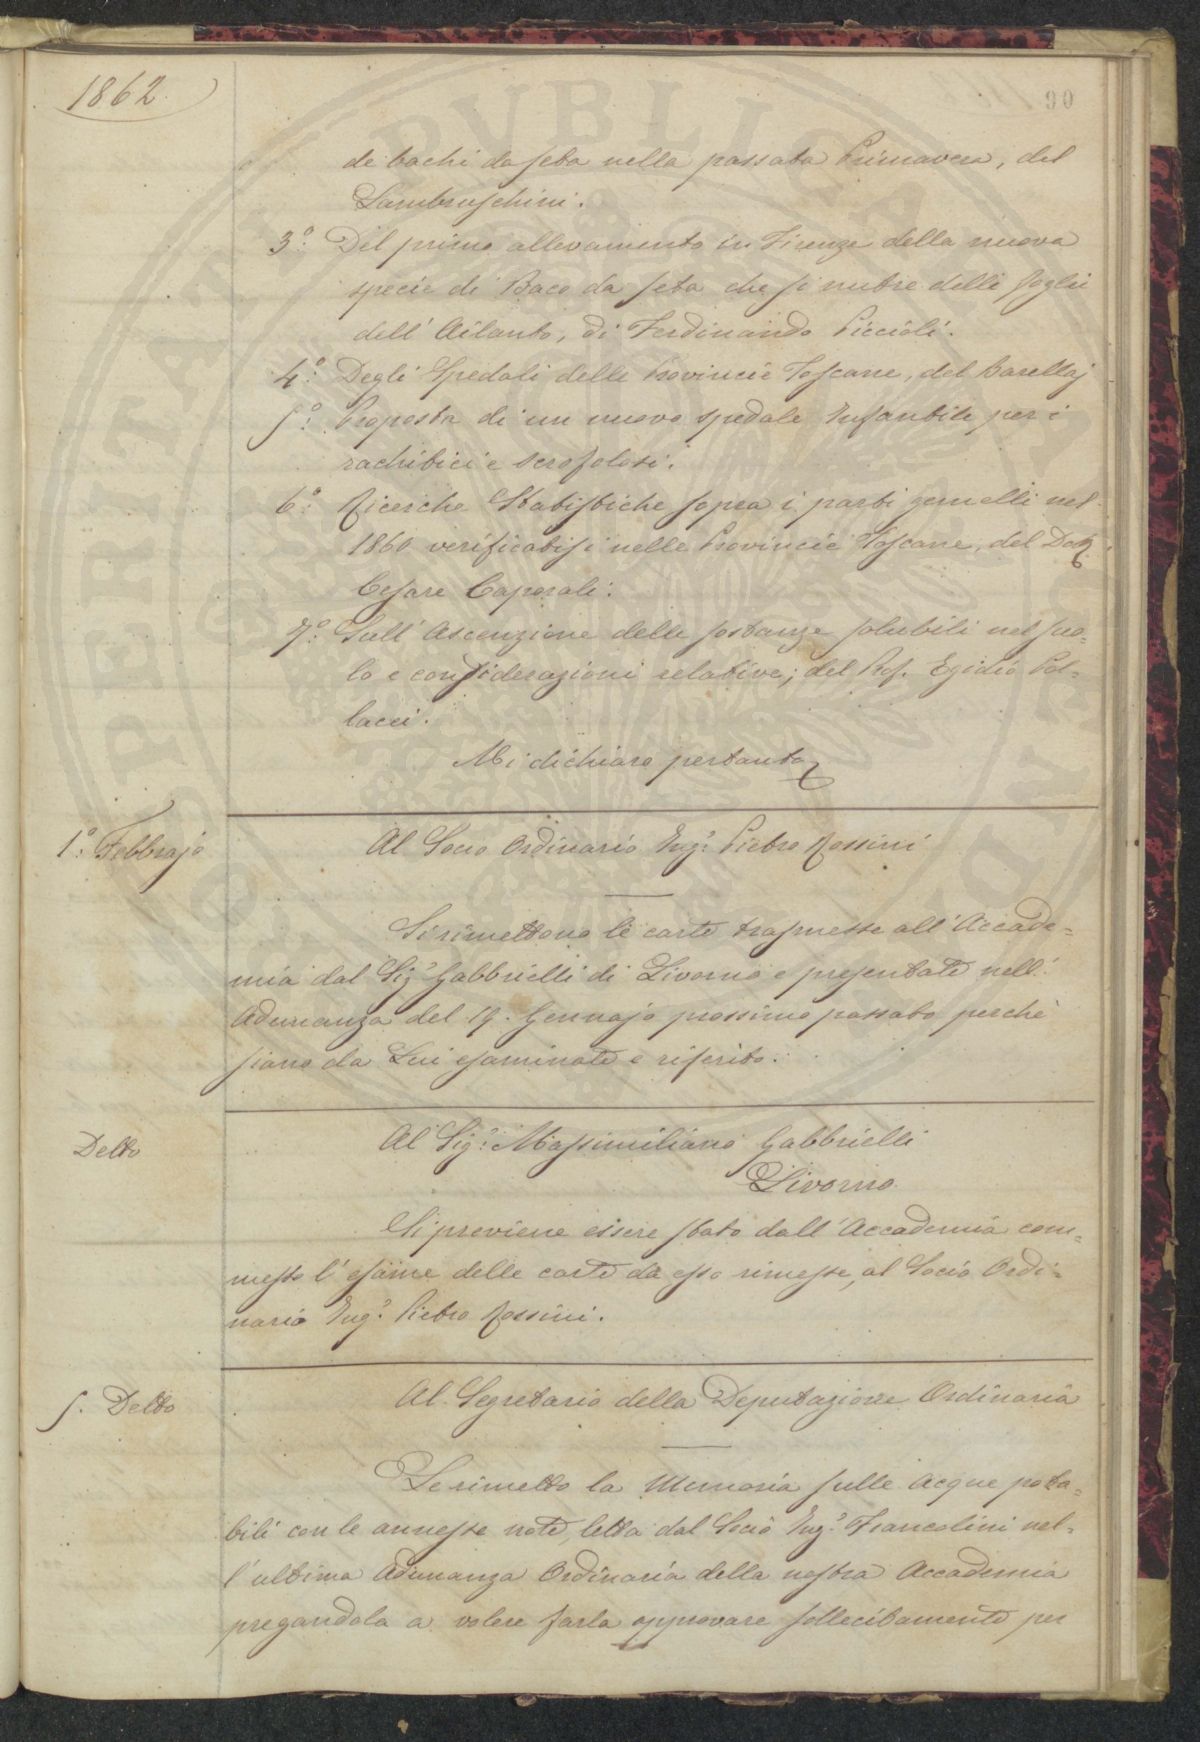 1862.
90
de bachi da seta nella passata Primavera, del
Lambruschini.
3.º Del primo allevamento in Firenze della nuova
specie di Baco da seta che si nutre delle foglie
dell' Ailanto, di Ferdinando Piccioli.
4.º Degli Spedali delle Provincie Toscane, del Barellaj
5.º Proposta di un nuovo spedale Infantile per i
rachitici e scrofolosi.
6.º Ricerche Statistiche sopra i parti gemelli nel
1860 verificatisi nelle Provincie Toscane, del Dott.
Cesare Caporali.
7.º Sull' Ascenzione delle sostanze solubili nel suo=
lo e considerazioni relative; del Prof. Egidio Pol=
lacci.
Mi dichiaro pertanto
1.º Febbrajo
Al Socio Ordinario Ing.e Pietro Rossini
Si rimettono le carte trasmesse all' Accade=
mia dal Sig.r Gabbrielli di Livorno e presentate nell'
Adunanza del 19. Gennajo prossimo passato perchè
siano da Lui esaminate e riferito.
Detto
Al Sig.r Massimiliano Gabbrielli
Livorno.
Si previene essere stato dall' Accademia com=
messo l' esame delle carte da esso rimesse, al Socio Ordi=
nario Ing.e Pietro Rossini.
5. Detto
Al Segretario della Deputazione Ordinaria
Le rimetto la Memoria sulle Acque pota=
bili con le annesse note, letta dal Socio Ing.e Francolini nel=
l' ultima Adunanza Ordinaria della nostra Accademia
pregandola a volere farla approvare sollecitamente per